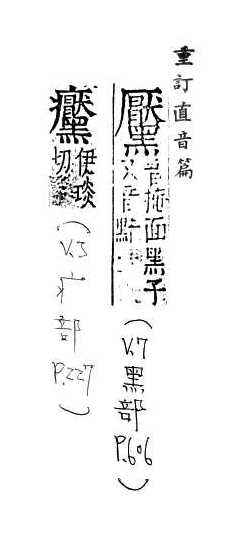 重訂直音篇
黶音掩面黑子
又音
(V.7黑部P.606)
伊琰
切
(V.5疒部P.227)